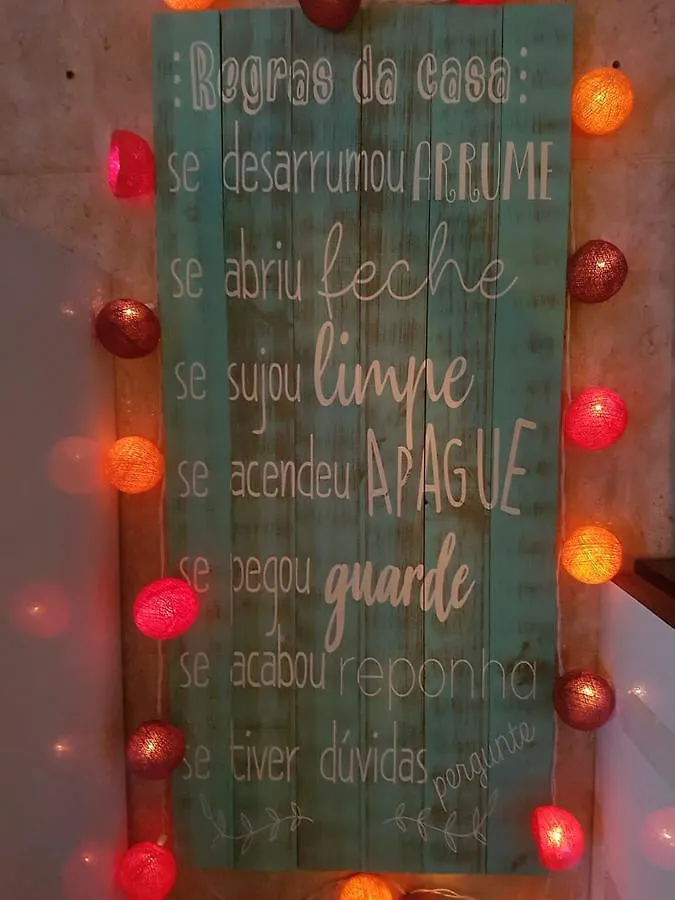 Regras da casa:
se desarrumou ARRUME
se abriu feche
se sujou limpe
se acendeu APAGUE
se pegou guarde
se acabou reponha
se tiver dúvidas pergunte